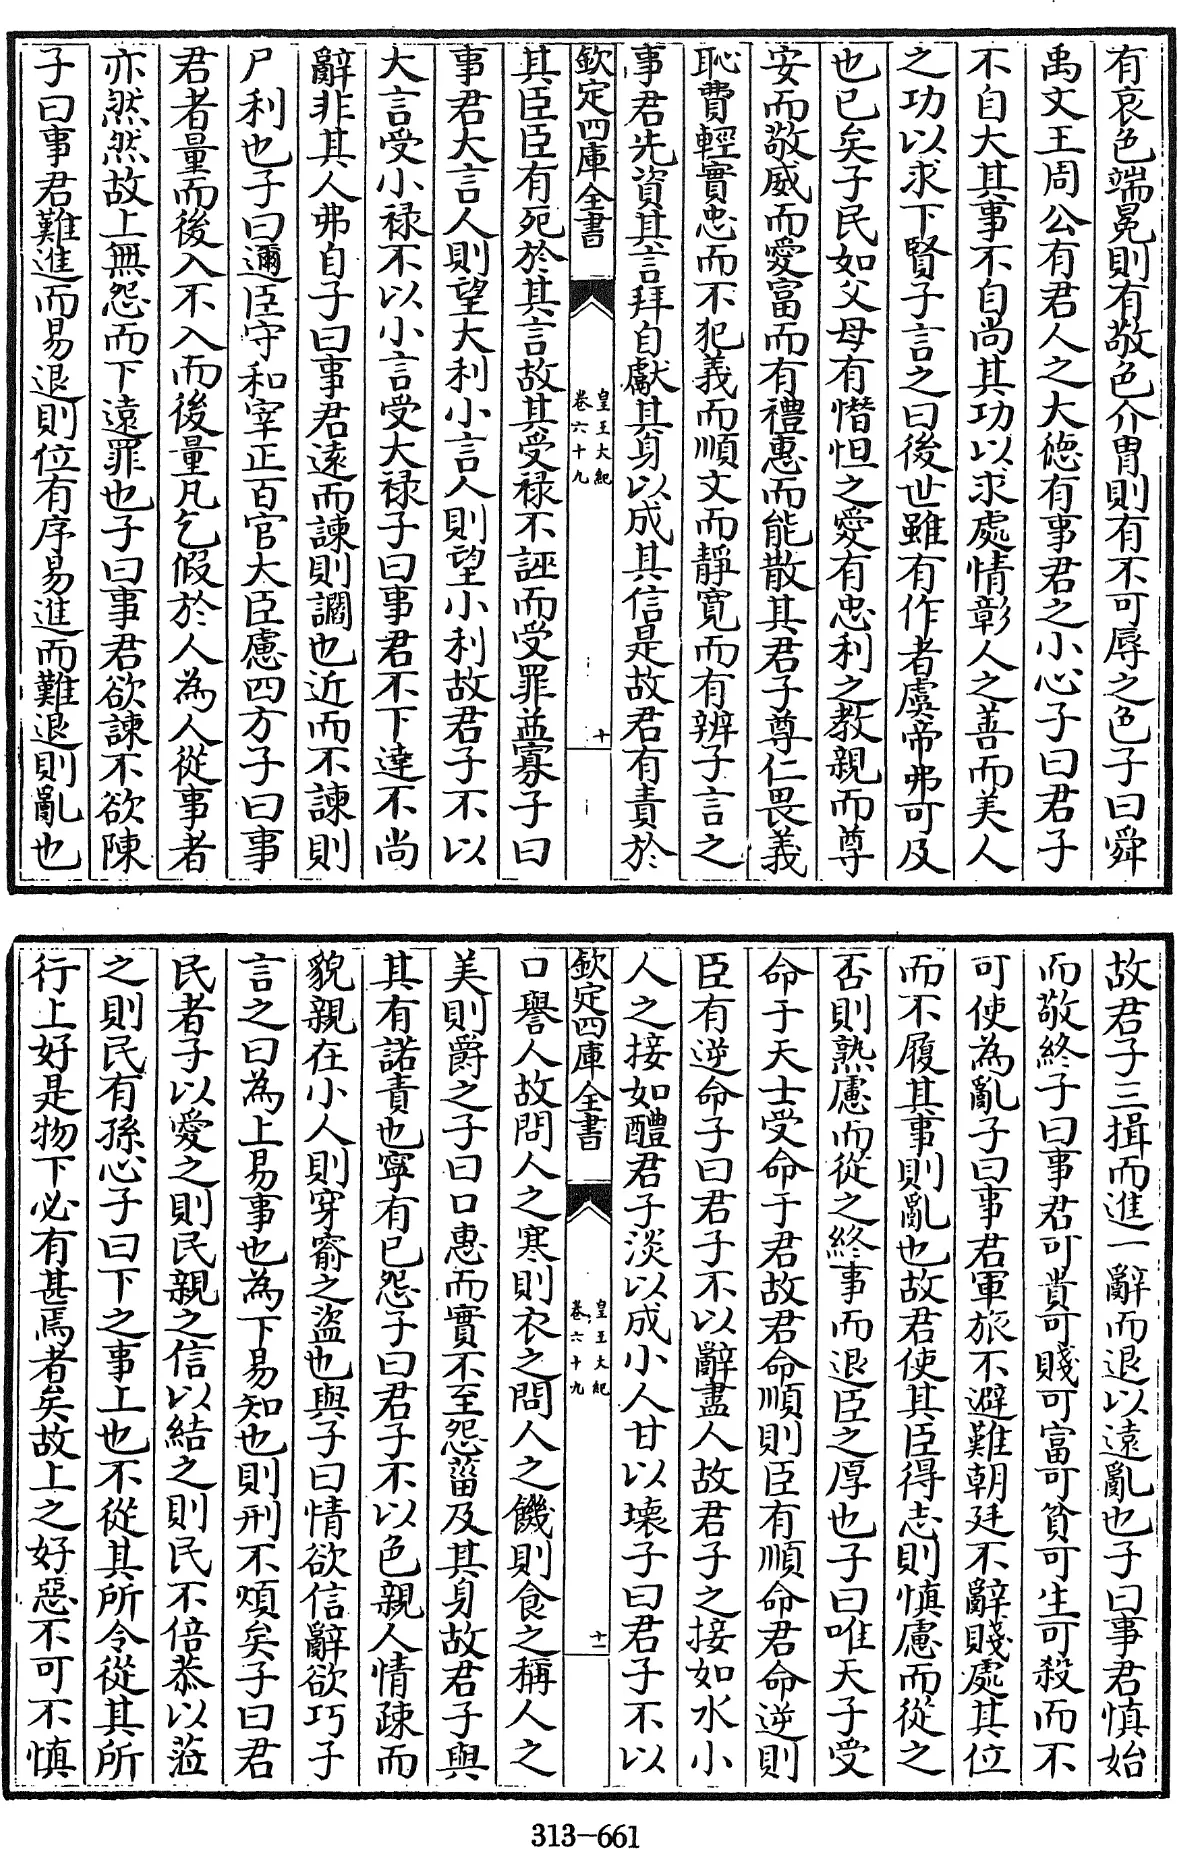 有哀色端冕則有敬色介胄則有不可辱之色子曰舜
禹文王周公有君人之大德有事君之小心子曰君子
不自大其事不自尚其功以求處情彰人之善而美人
之功以求下賢子言之曰後世雖有作者虞帝弗可及
也已矣子民如父母有憯怛之愛有忠利之教親而尊
安而敬威而愛富而有禮惠而能散其君子尊仁畏義
恥費輕實忠而不犯義而順文而靜寛而有辨子言之
事君先資其言拜自獻其身以成其信是故君有責於
欽定四庫全書
皇王大紀
卷六十九
十
其臣臣有死於其言故其受祿不誣而受罪益寡子曰
事君大言人則望大利小言人則望小利故君子不以
大言受小祿不以小言受大祿子曰事君不下達不尚
辭非其人弗自子曰事君逺而諫則讇也近而不諫則
尸利也子曰邇臣守和宰正百官大臣慮四方子曰事
君者量而後入不入而後量凡乞假於人為人從事者
亦然然故上無怨而下遠罪也子曰事君欲諫不欲陳
子曰事君難進而易退則位有序易進而難退則亂也
故君子三揖而進一辭而退以遠亂也子曰事君慎始
而敬終子曰事君可貴可賤可富可貧可生可殺而不
可使為亂子曰事君軍旅不避難朝廷不辭賤處其位
而不履其事則亂也故君使其臣得志則慎慮而從之
否則熟慮而從之終事而退臣之厚也子曰唯天子受
命于天士受命于君故君命順則臣有順命君命逆則
臣有逆命子曰君子不以辭盡人故君子之接如水小
人之接如醴君子淡以成小人甘以壞子曰君子不以
欽定四庫全書
皇王大紀
卷六十九
十一
口譽人故問人之寒則衣之問人之饑則食之稱人之
美則爵之子曰口惠而實不至怨菑及其身故君子與
其有諾責也寧有已怨子曰君子不以色親人情疎而
貌親在小人則穿窬之盜也與子曰情欲信辭欲巧子
言之曰為上易事也為下易知也則刑不煩矣子曰君
民者子以愛之則民親之信以結之則民不倍恭以涖
之則民有孫心子曰下之事上也不從其所令從其所
行上好是物下必有甚焉者矣故上之好惡不可不慎
313-661